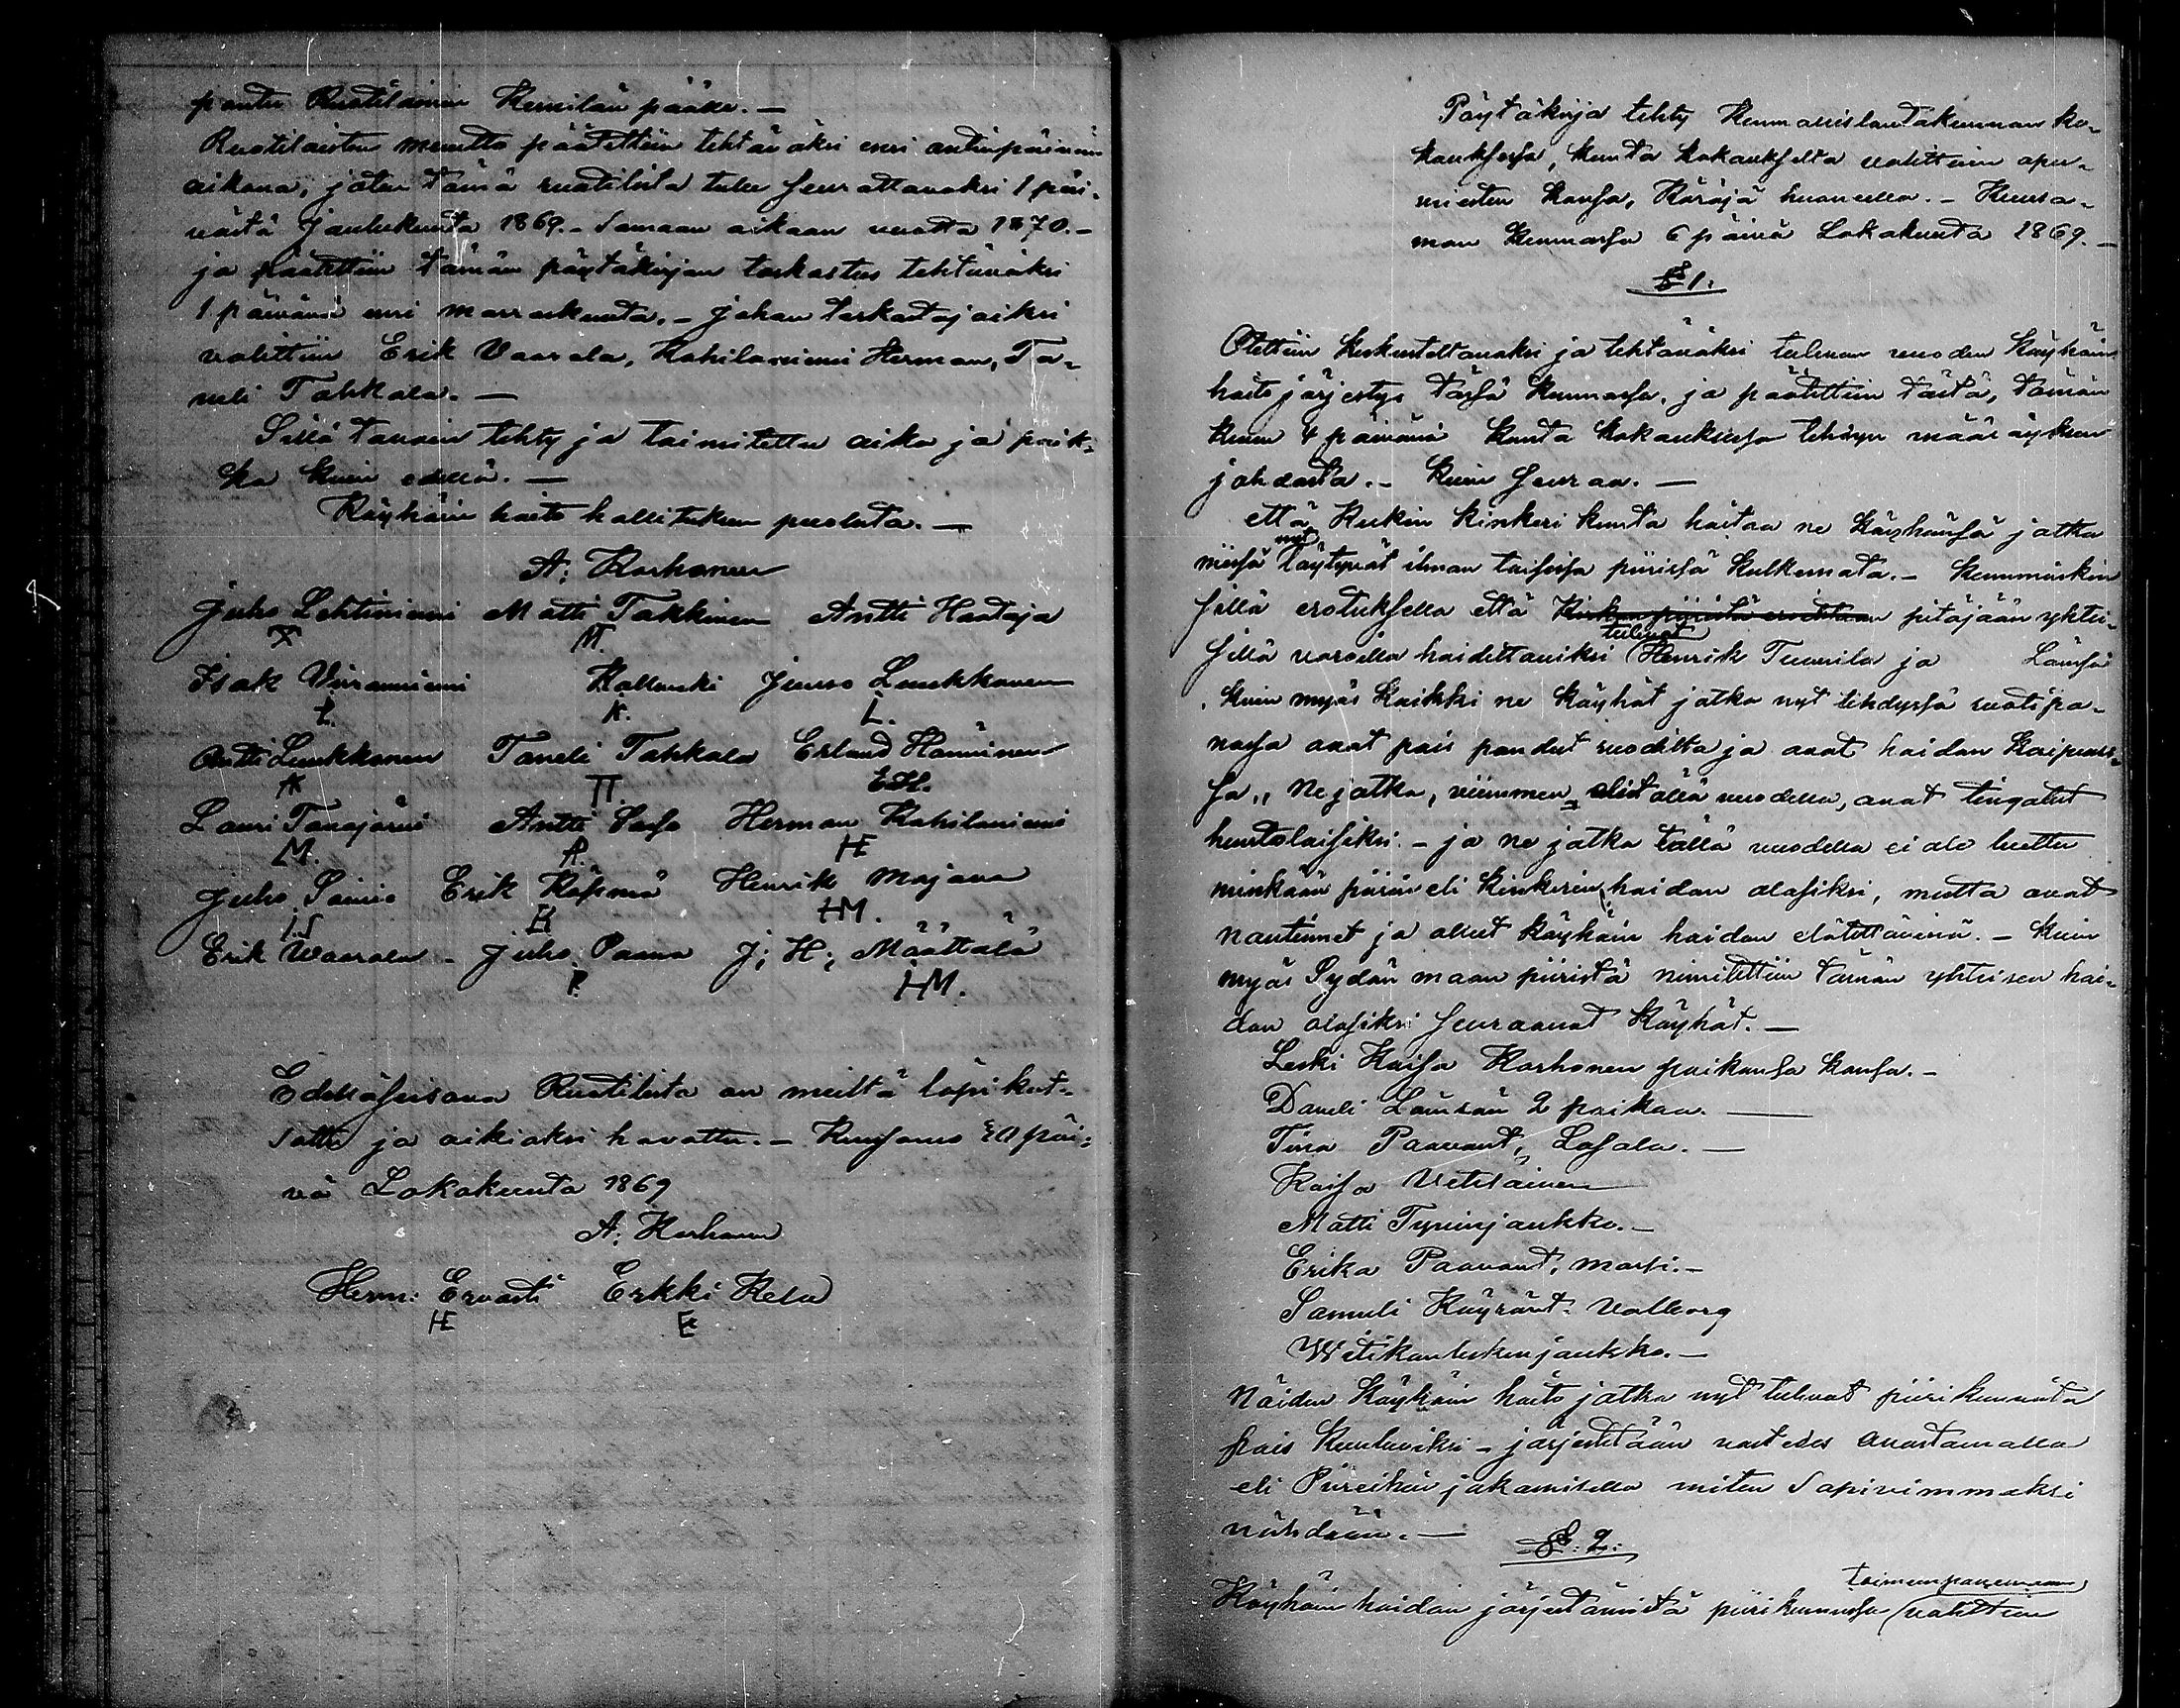 pantu Ruotilaisia Hemilän pääke. —
Ruotilaisten muutto päätettiin tehtäväksi ensi antinpäivän
aikana, joten tämä ruotilista tulee seurattavaksi 1 päi-
västä Joulukuuta 1869. - Samaan aikaan vuotta 1870. -
ja päätettiin tämän pöytäkirjan tarkastus tehtäväksi
1 päivänä ensi marraskuuta. - Johon tarkastajaiksi
valittiin Erik Vaarala, Kohilaniemi Herman, Ta-
neli Tahkola. —
Sillä tavoin tehty ja toimitettu aika ja paik-
ka kuin edellä. —
Käyhäin hoito hallituksen puolesta. —
A; Korhonen
Juho Lehtiniemi Matti Takkinen Antti Haataja
M.
Isak Viiranniemi Kallunki Juuso Luukkonen
K. L.
Antti Luukkonen Taneli Tahkola Erland Hänninen
TT. EH.
Lauri Tavajärvi Antti Säfs Herman Kohilaniemi
M. A. H
Juho Sainio Erik Käsmä Henrik Majava
I.S K HM.
Erik Waarala - Juho Paana J; H; Määttälä
P. HM.
Edelläseisova Ruotilista on meiltä läpi kat-
sottu ja oikiaksi havattu. - Kuusamo 20 päi-
vä Lokakuuta 1869
A; Korhonen
Herm: Ervasti Erkki Kela
HE E
Pöytäkirja tehty Kunnallislautakunnan ko-
kouksessa, kunta kokoukselta valittuin apu-
miesten kansa, Käräjä huoneella. - Kuusa-
mon kunnassa 6 päivä Lokakuuta 1869. —
§ 1.
Otettiin keskusteltavaksi ja tehtäväksi tulevan vuoden Käyhäin
hoitojärjestys tässä kunnassa, ja päätettiin tästä, tämän
kuun 4 päivänä kunta kokouksessa tehdyn määräyksen
johdosta. - Kuin seuraa. —
että Kukin kinkeri kunta hoitaa ne Käyhänsä jotka
niissä nyt löytyvät ilman toisessa piirissä kulkemata. - Kumminkin
sillä erotuksella että Kirkon piiristä erotetaan pitäjään yhtei-
sillä varoilla hoidettaviksi tulevat Henrik Tuurila ja Lämsä
kuin myös kaikki ne käyhät jotka nyt tehdyssä ruotipa-
nossa ovat pois pandut ruodilta ja ovat hoidon kaipuus-
sa,, Ne jotka, viimmen eli tällä vuodella, ovat tingatut
huutolaisiksi. - ja ne jotka tällä vuodella ei ole luettu
minkään piirin eli kinkerin hoidon alasiksi, mutta ovat
nautinnet ja olleet käyhäin hoidon elätettävinä. - Kuin
myös Sydän maan piiristä nimitettiin tämän yhteisen hoi-
don alasiksi seuraavat Käyhät. —
Leski Kaisa Korhonen poikansa kansa. -
Daneli Lämsän 2 poikaa. —
Tiina Paavant, Lasala. —
Kaisa Vetelainen
Matti Tyninjaukko. —
Erika Paavant, . -
Samuli Käyränt. Valborg
Witikanleskenjaukko. —
Näiden Käyhäin hoito jotka nyt tulevat piirikunnista
pois kuuluviksi - järjestetään vastedes avustamalla
eli Piireihin jakamisella miten Sopivimmaksi
nähdään. —
§. 2.
Käyhäin hoidon järjestämistä piirikunnissa toimeenpanemaan valittiin